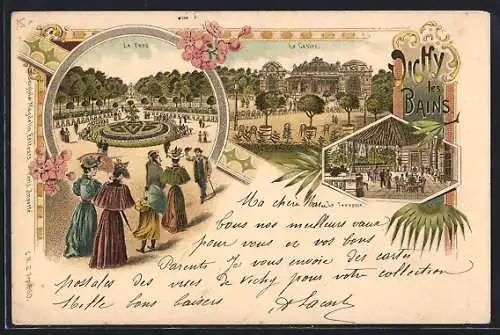 Le Parc
Le Casino
Vichy
les
BAINS
La Terrasse
Ma chère
tous nos meilleurs vœux
pour vous et vos bons
Parents Je vous envoie des cartes
postales des vues de Vichy pour votre collection
Mille bons baisers